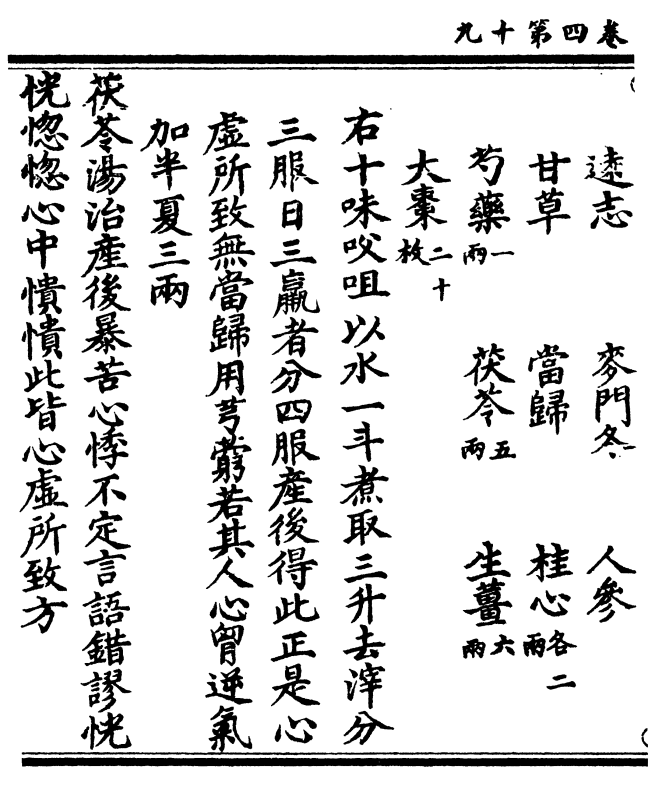 卷四第十九
遠志 麥門冬 人參
甘草 當歸 桂心各二兩
芍藥一兩 茯苓五兩 生薑六兩
大棗二十枚
右十味㕮咀以水一斗煮取三升去滓分
三服日三羸者分四服產後得此正是心
虛所致無當歸用芎藭若其人心胷逆氣
加半夏三兩
茯苓湯治產後暴苦心悸不定言語錯謬恍
恍惚惚心中憒憒此皆心虛所致方